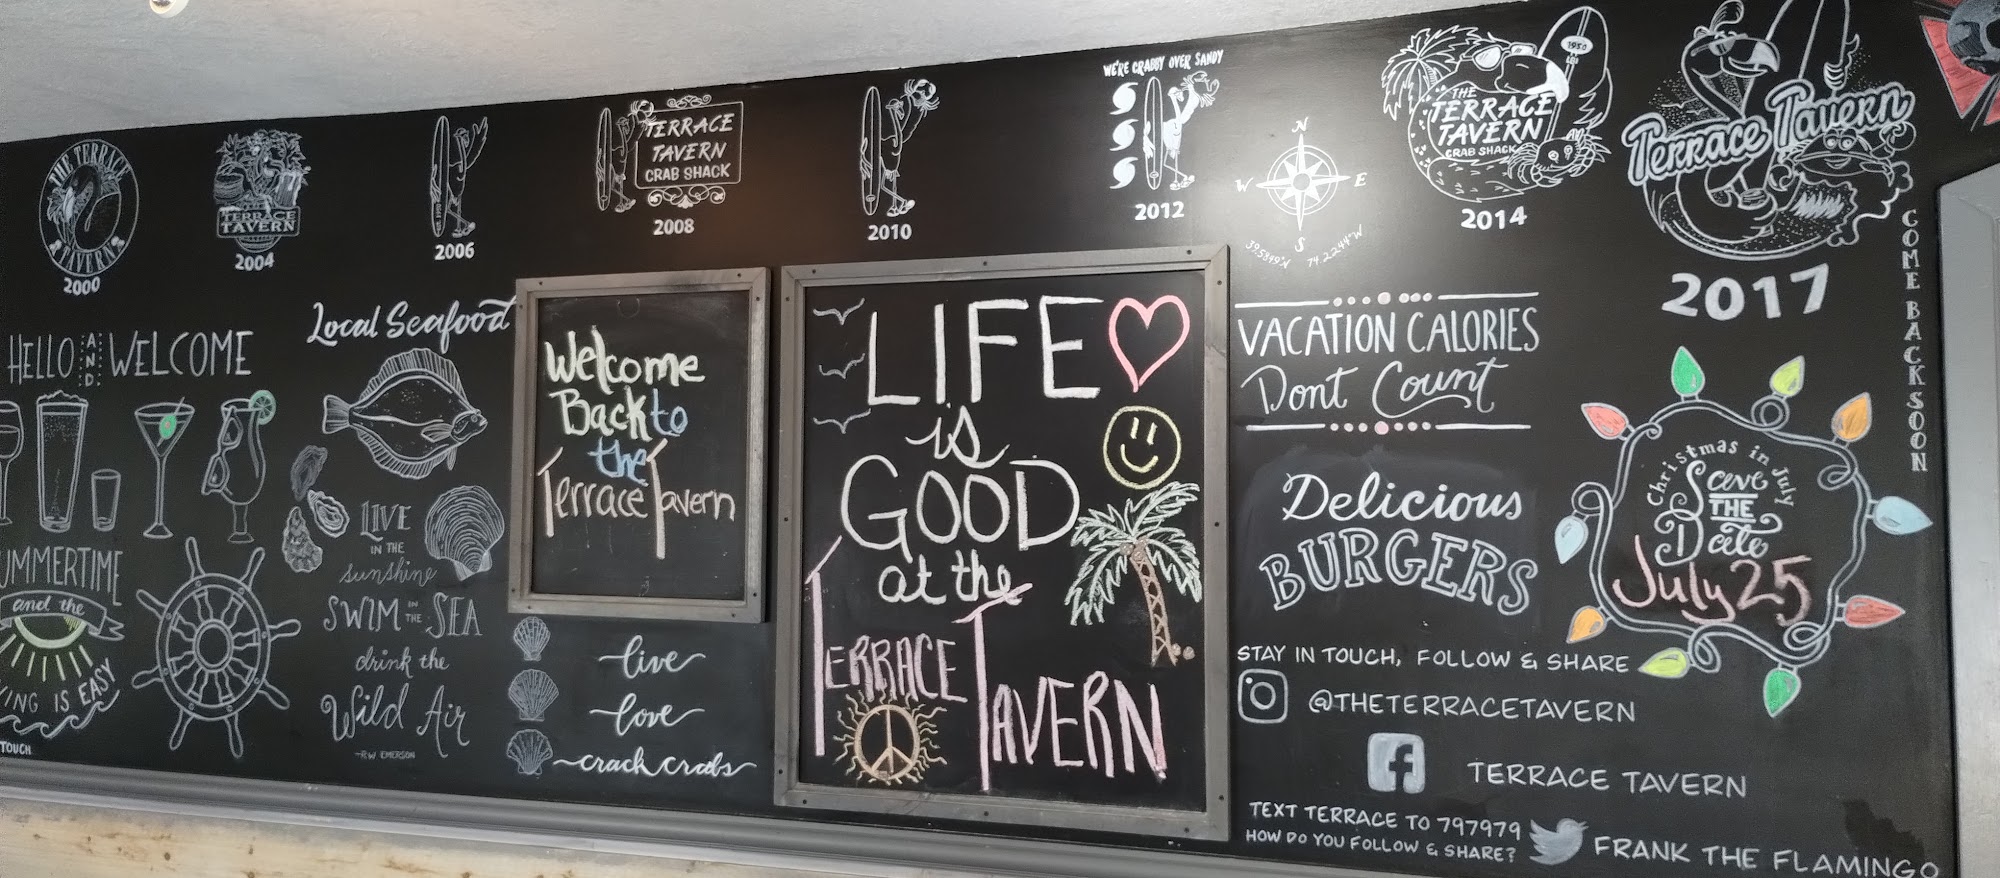 THE TERRACE
TAVERN
2000
THE
TERRACE
TAVERN
2004
2006
TERRACE
TAVERN
CRAB SHACK
2008
2010
WE'RE CRABBY OVER SANDY
2012
N
W E
S
39.5849°N 74.2244°W
1950
THE
TERRACE
TAVERN
CRAB SHACK
2014
Terrace Tavern
2017
COME BACK SOON
HELLO AND WELCOME
UMMERTIME
and the
VING IS EASY
TOUCH
Local Seafood
LIVE
IN THE
sunshine
SWIM IN THE SEA
drink the
Wild Air
-RW EMERSON
Welcome
Back to
the
Terrace Tavern
live
love
crack crabs
LIFE
is
GOOD
at the
TERRACE
TAVERN
VACATION CALORIES
Dont Count
Delicious
BURGERS
Christmas in July
Save
THE
Date
July 25
STAY IN TOUCH, FOLLOW & SHARE
@THETERRACETAVERN
TERRACE TAVERN
TEXT TERRACE TO 797979
HOW DO YOU FOLLOW & SHARE?
FRANK THE FLAMINGO